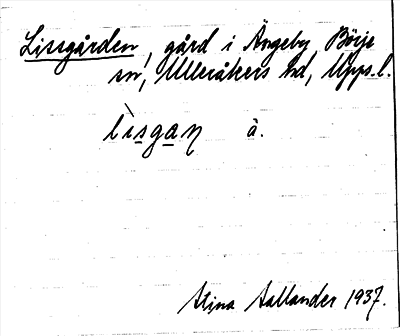 Lissgården, gård i Ängeby, Börje
sn, Ulleråkers hd, Upps. l.
lìsgaɳ å.
Stina Hallander 1937.